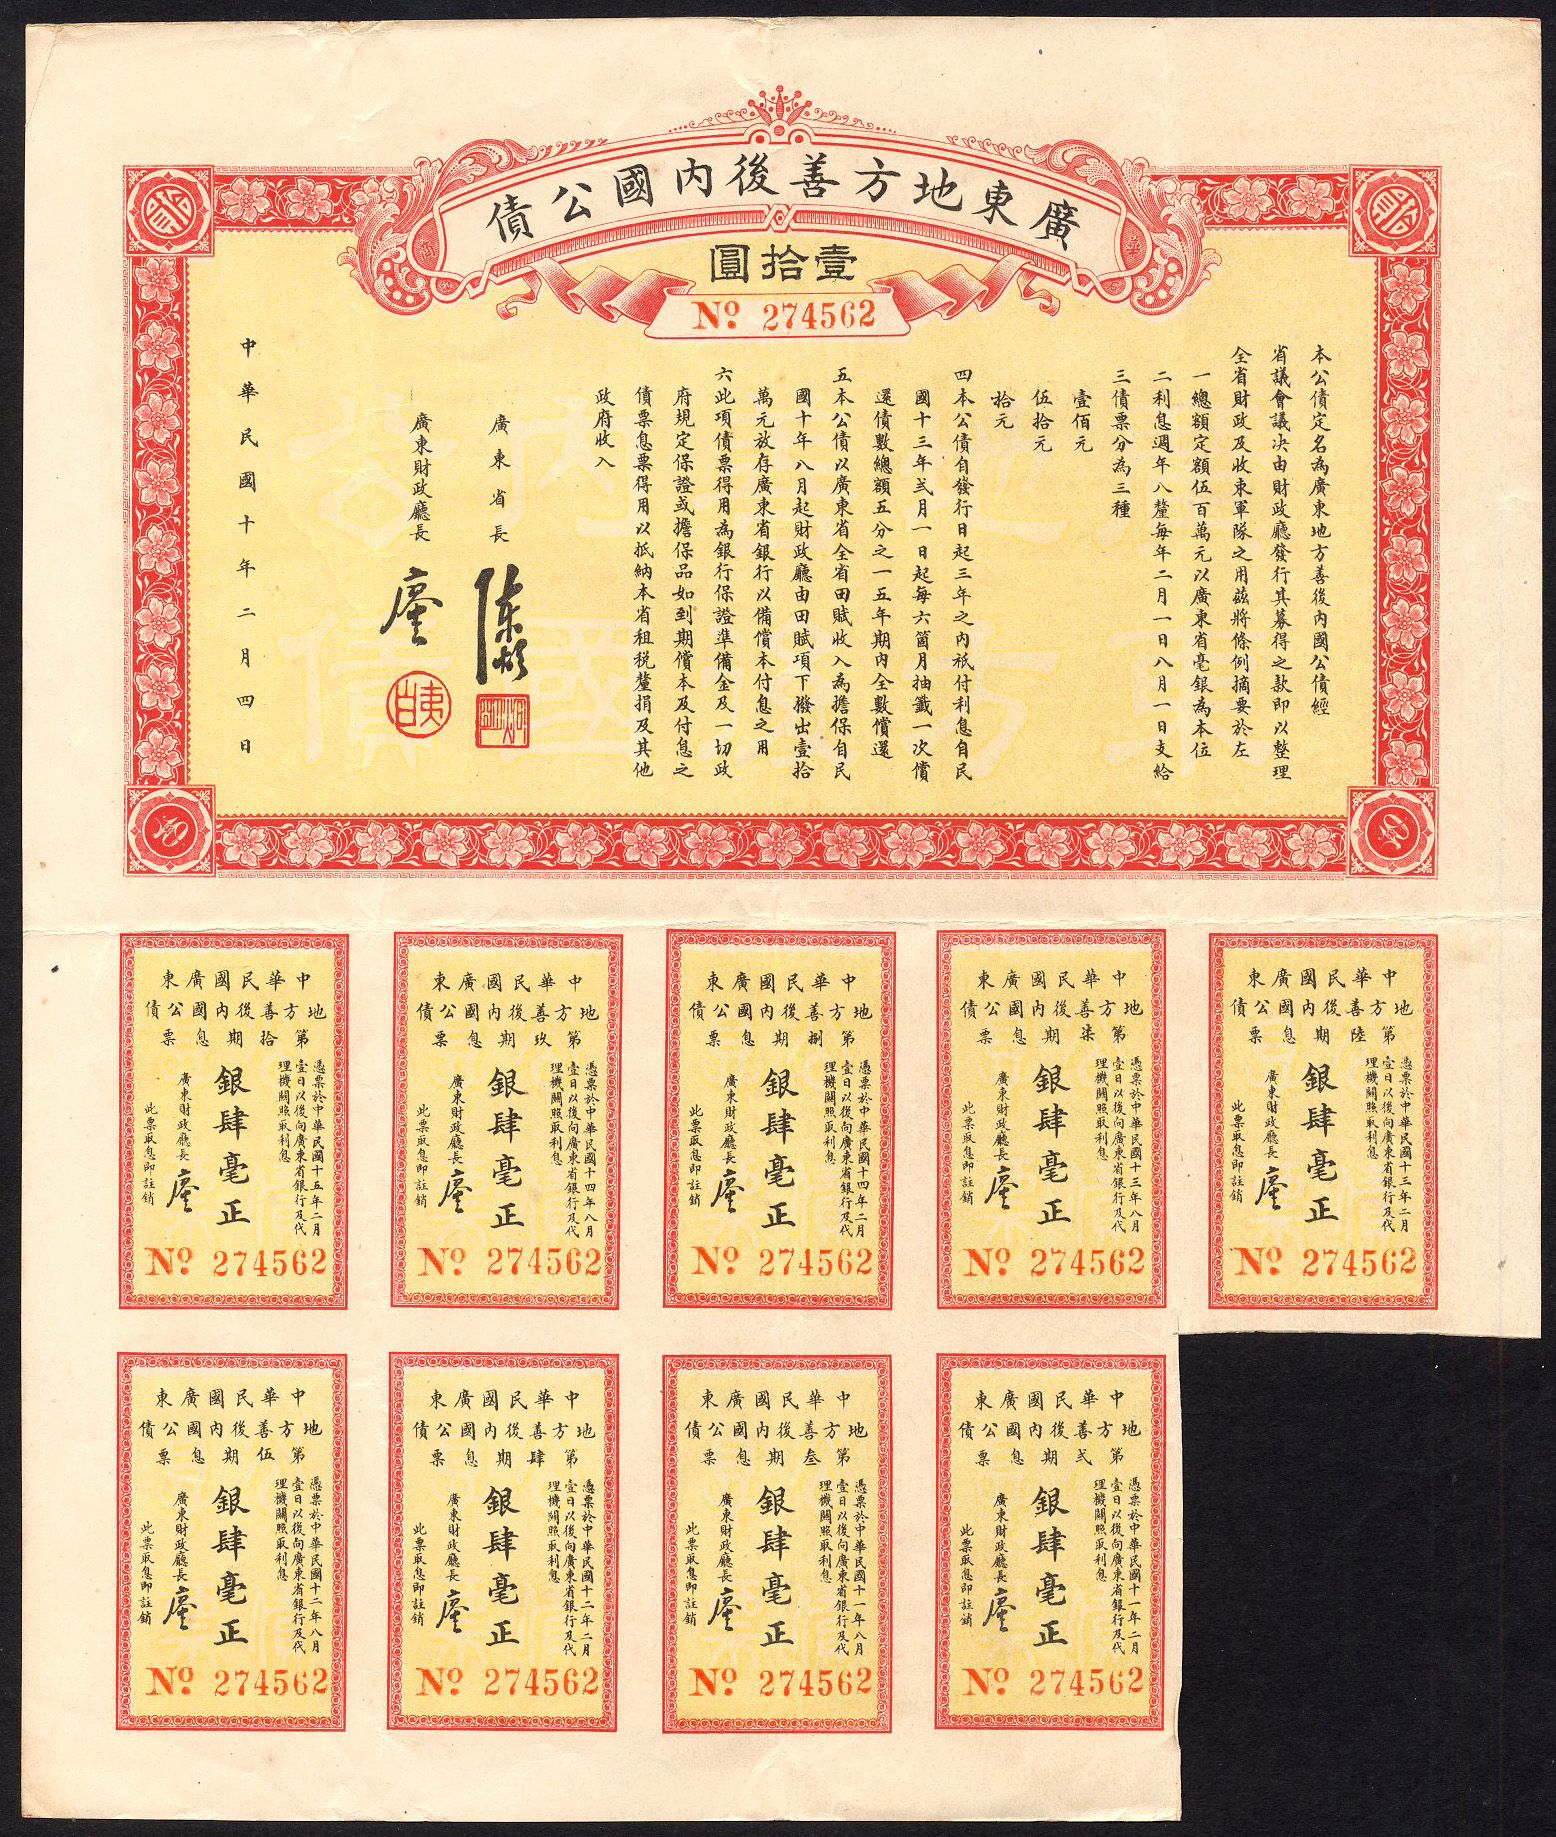 廣東地方善後內國公債
壹拾圓
No. 274562
本公債定名為廣東地方善後內國公債經
省議會議决由財政廳發行其募得之款即以整理
全省財政及收束軍隊之用茲將條例摘要於左
一總額定額伍百萬元以廣東省毫銀為本位
二利息週年八釐每年二月一日八月一日支給
三債票分為三種
壹佰元
伍拾元
拾元
四本公債自發行日起三年之內祇付利息自民
國十三年弍月一日起每六箇月抽籤一次償
還債數總額五分之一五年期內全數償還
五本公債以廣東省全省田賦收入為擔保自民
國十年八月起財政廳由田賦項下撥出壹拾
萬元放存廣東省銀行以備償本付息之用
六此項債票得用為銀行保證準備金及一切政
府規定保證或擔保品如到期償本及付息之
債票息票得用以抵納本省租稅釐捐及其他
政府收入
廣東省長
廣東財政廳長
中華民國十年二月四日
10
10
中華民國廣東
地方善後內國公債
第陸期息票
憑票於中華民國十三年二月
壹日以後向廣東省銀行及代
理機關照取利息
銀肆毫正
廣東財政廳長
此票取息即註銷
No. 274562
中華民國廣東
地方善後內國公債
第柒期息票
憑票於中華民國十三年八月
壹日以後向廣東省銀行及代
理機關照取利息
銀肆毫正
廣東財政廳長
此票取息即註銷
No. 274562
中華民國廣東
地方善後內國公債
第捌期息票
憑票於中華民國十四年二月
壹日以後向廣東省銀行及代
理機關照取利息
銀肆毫正
廣東財政廳長
此票取息即註銷
No. 274562
中華民國廣東
地方善後內國公債
第玖期息票
憑票於中華民國十四年八月
壹日以後向廣東省銀行及代
理機關照取利息
銀肆毫正
廣東財政廳長
此票取息即註銷
No. 274562
中華民國廣東
地方善後內國公債
第拾期息票
憑票於中華民國十五年二月
壹日以後向廣東省銀行及代
理機關照取利息
銀肆毫正
廣東財政廳長
此票取息即註銷
No. 274562
中華民國廣東
地方善後內國公債
第弍期息票
憑票於中華民國十一年二月
壹日以後向廣東省銀行及代
理機關照取利息
銀肆毫正
廣東財政廳長
此票取息即註銷
No. 274562
中華民國廣東
地方善後內國公債
第叁期息票
憑票於中華民國十一年八月
壹日以後向廣東省銀行及代
理機關照取利息
銀肆毫正
廣東財政廳長
此票取息即註銷
No. 274562
中華民國廣東
地方善後內國公債
第肆期息票
憑票於中華民國十二年二月
壹日以後向廣東省銀行及代
理機關照取利息
銀肆毫正
廣東財政廳長
此票取息即註銷
No. 274562
中華民國廣東
地方善後內國公債
第伍期息票
憑票於中華民國十二年八月
壹日以後向廣東省銀行及代
理機關照取利息
銀肆毫正
廣東財政廳長
此票取息即註銷
No. 274562